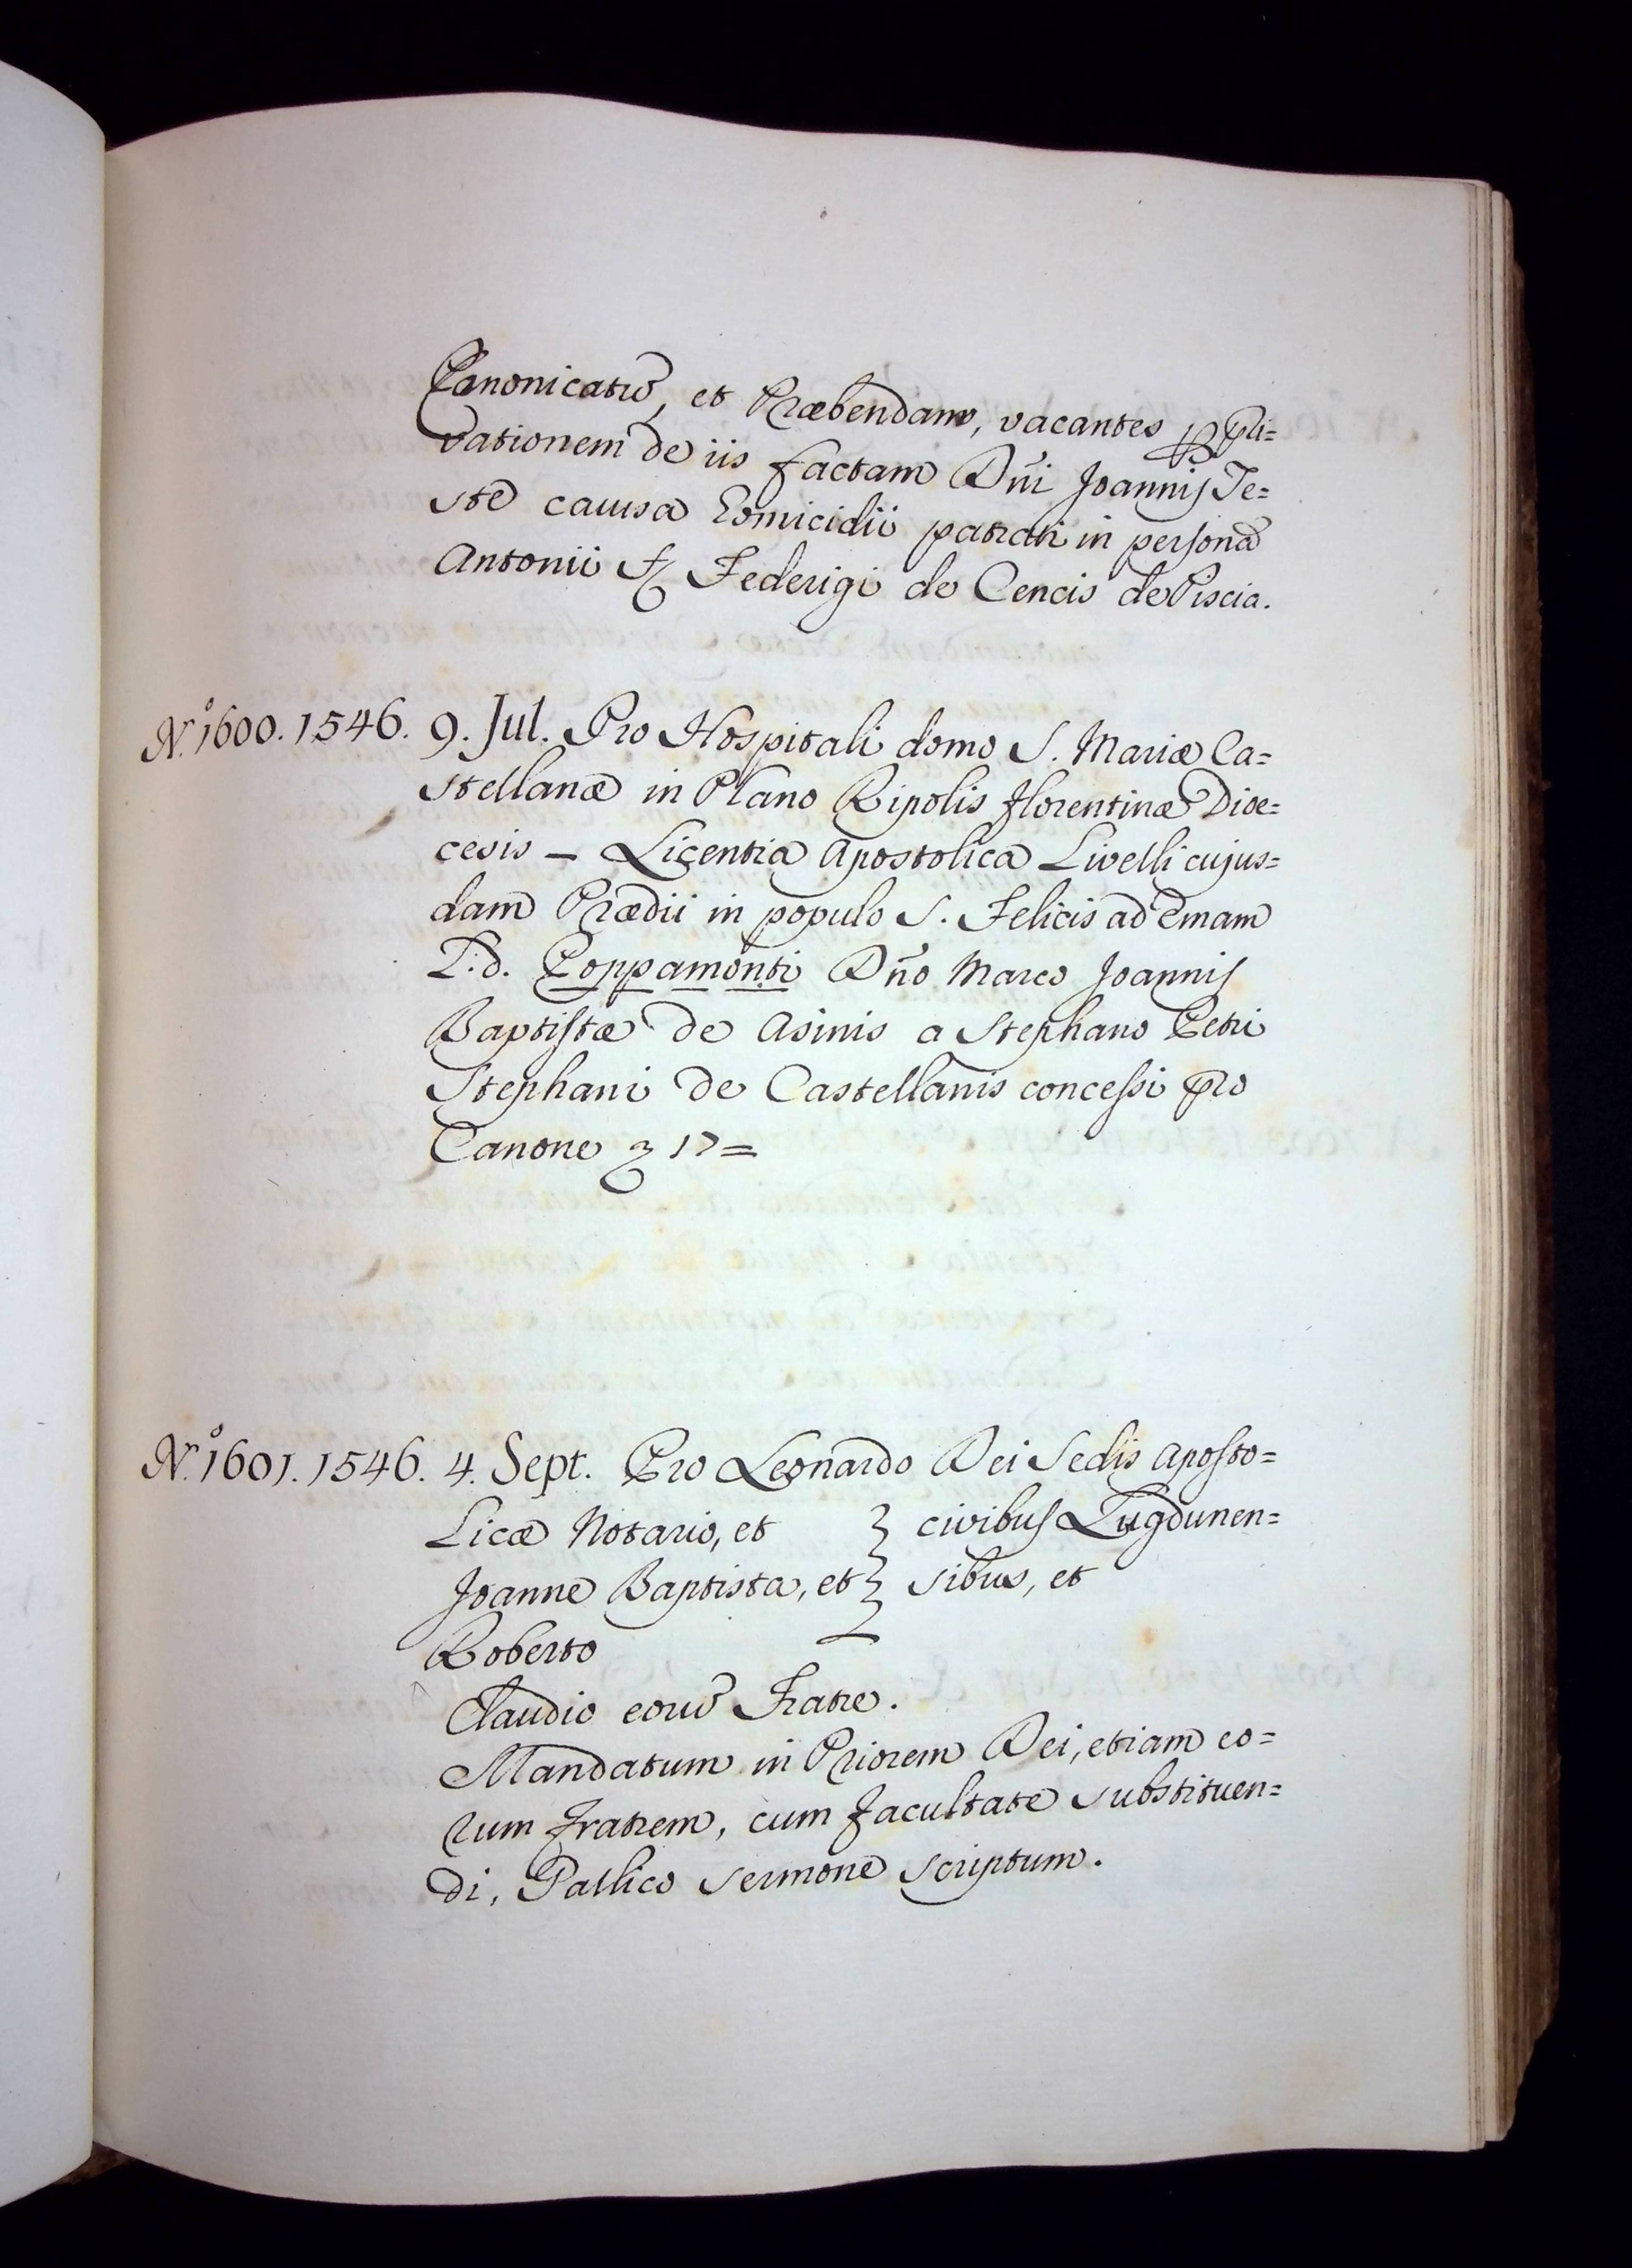 Canonicatũ, et Præbendam, vacantes ꝑ pri=
vationem de iis factam Dñi Joannis Te=
stẽ causa Homicidii patrati in persona
Antonii Federigi de Cencis de Piscia.
N.º 1600. 1546. 9. Jul. Pro Hospitali domo S. Mariæ Ca=
stellanæ in Plano Ripolis Florentinæ Dioe=
cesis – Licentia Apostolica Livelli cujus=
dam Prædii in populo S. Felicis ad Emam
L.d. Poppamonti Dño Marco Joannis
Baptistæ de Asinis a Stephano Petri
Stephani de Castellanis concessi pro
Canone 17=
N.º 1601. 1546. 4. Sept. Pro Leonardo Dei Sedis Aposto=
licæ Notario, et } civibus Lugdunen=
Joanne Baptista, et } sibus, et
Roberto
Claudio eorũ Fratre.
Mandatum in Priorem Dei, etiam eo=
rum fratrem, cum facultate substituen=
di, Gallico sermone scriptum.